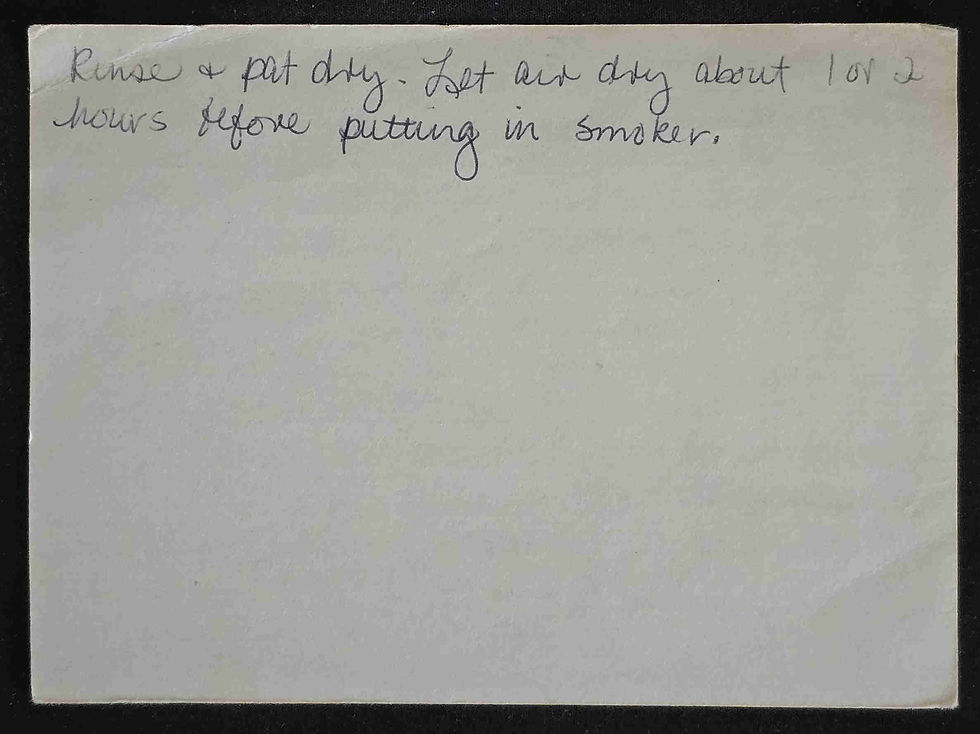 Rinse & pat dry. Let air dry about 1 or 2
hours before putting in smoker.